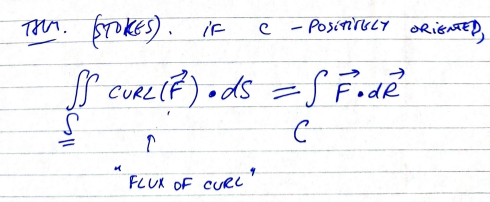 THM. (STOKES). IF C - POSITIVELY ORIENTED,
∬ CURL(F⃗) • dS = ∫ F⃗ • dR⃗
S C
↑
"FLUX OF CURL"